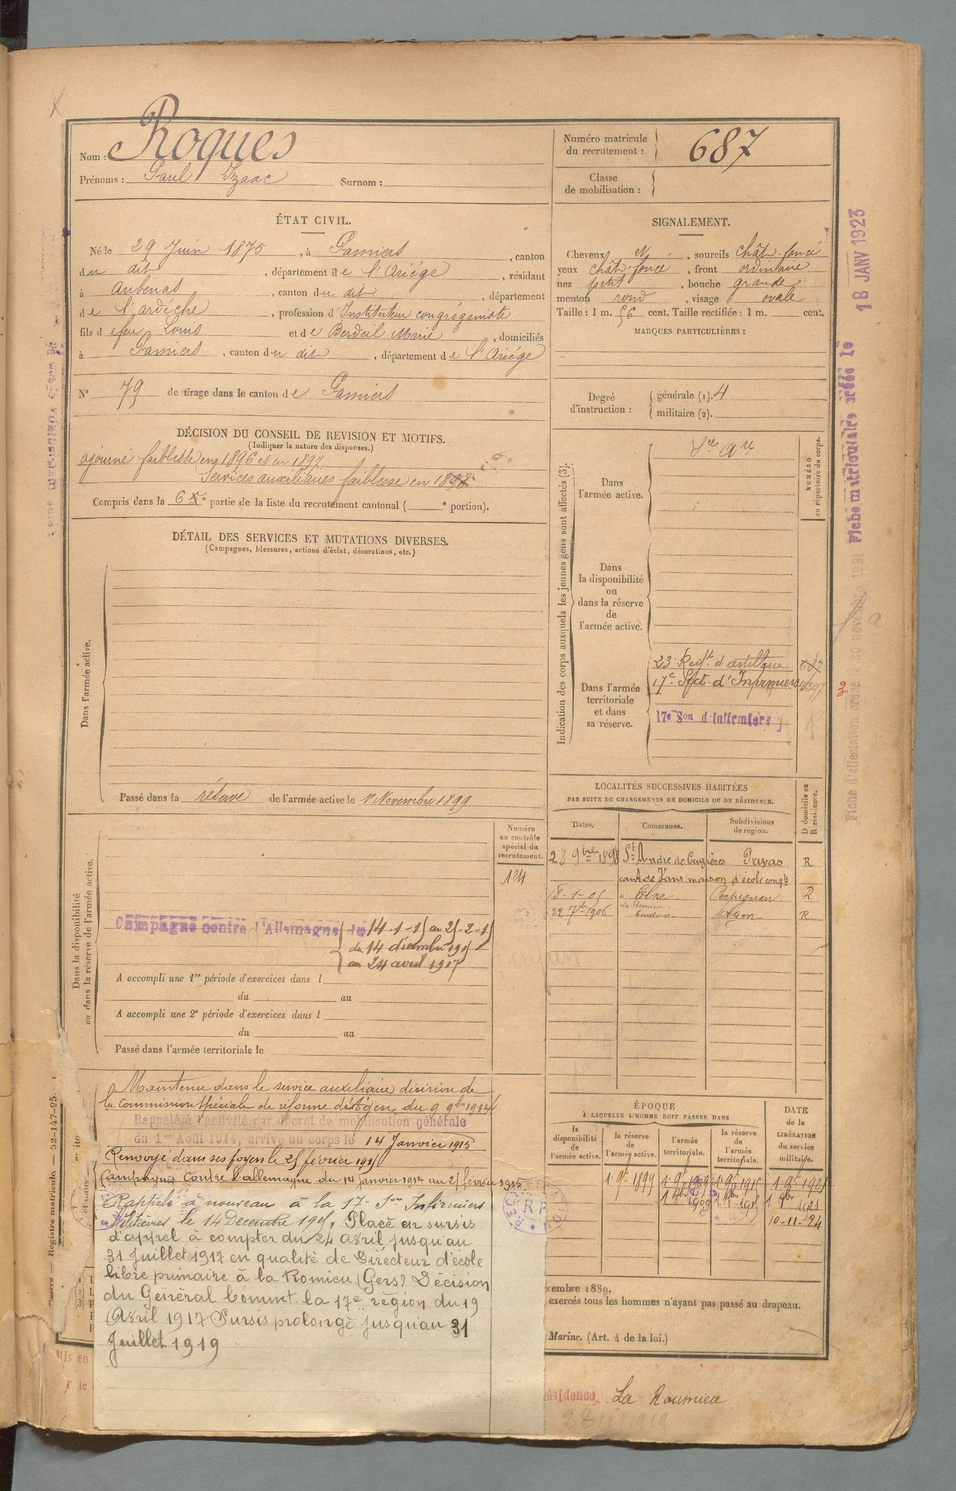 Nom : Roques
Prénoms : Paul Izaac Surnom :
Numéro matricule du recrutement : 687
Classe de mobilisation :
ÉTAT CIVIL.
Né le 29 Juin 1875, à Pamiers, canton
du dit, département de l'Ariége, résidant
à Aubenas, canton du dit, département
de l'ardèche, profession d'Instituteur congréganiste
fils de feu Louis et de Berdeil Marie, domiciliés
à Pamiers, canton du dit, département de l'Ariége
N° 79 de tirage dans le canton de Pamiers
SIGNALEMENT.
Cheveux N, sourcils chât-foncé
yeux chât-foncé, front ordinaire
nez petit, bouche grande
menton rond, visage ovale
Taille : 1 m. 56 cent. Taille rectifiée : 1 m. cent.
MARQUES PARTICULIÈRES :
Degré d'instruction : générale (1). 4
militaire (2).
DÉCISION DU CONSEIL DE REVISION ET MOTIFS.
(Indiquer la nature des dispenses.)
ajourné faiblesse en 1896 et en 1897
Services auxiliaires faiblesse en 1898
Compris dans la 6 e partie de la liste du recrutement cantonal ( e portion).
DÉTAIL DES SERVICES ET MUTATIONS DIVERSES.
(Campagnes, blessures, actions d'éclat, décorations, etc.)
Dans l'armée active.
Passé dans la réserve de l'armée active le 1er Novembre 1899
Indication des corps auxquels les jeunes gens sont affectés (3).
NUMÉRO au répertoire du corps.
Dans l'armée active.
Dans la disponibilité ou dans la réserve de l'armée active.
Dans l'armée territoriale et dans sa réserve.
23e Regt d'artillerie
17e Sect. d'Infirmiers
17e Son d'infirmiers
Dans la disponibilité ou dans la réserve de l'armée active.
Numéro au contrôle spécial du recrutement.
124
Campagne contre l'Allemagne
du 14 décembre 191
au 24 avril 1917
A accompli une 1re période d'exercices dans l
du au
A accompli une 2e période d'exercices dans l
du au
Passé dans l'armée territoriale le
LOCALITÉS SUCCESSIVES HABITÉES
PAR SUITE DE CHANGEMENTS DE DOMICILE OU DE RÉSIDENCE.
Dates. Communes. Subdivisions de région. D domicile ou R résidence.
28 9bre 1898 St André de Cruzières Privas R
canton de Vans maison d'école congte
8-1-05 Elne Perpignan
22 7bre 1906 La Romieu Condom Agen R.
Maintenu dans le service auxiliaire décision de
la Commission Spéciale de réforme d'Agen du 9 9bre 1914
Rappelé à l'activité par décret de mobilisation générale
du 1er Août 1914, arrivé au corps le 14 Janvier 1915
Renvoyé dans ses foyers le 25 février 1915
Campagnes contre l'allemagne du 14 janvier 1915 au 25 février 1915
Rappelé à nouveau à la 17e Son Infirmiers
Militaires le 14 Décembre 191. Placé en sursis
d'appel à compter du 24 Avril jusqu'au
31 Juillet 1917 en qualité de Directeur d'école
libre primaire à la Romieu (Gers) Décision
du Général Commt. la 17e région du 19
Avril 1917 Sursis prolongé jusqu'au 31
Juillet 1919
ÉPOQUE
À LAQUELLE L'HOMME DOIT PASSER DANS
la disponibilité de l'armée active.
la réserve de l'armée active.
l'armée territoriale.
la réserve de l'armée territoriale.
DATE de la LIBÉRATION du service militaire.
1 9bre 1899
10-11-24
cembre 1889.
exercés tous les hommes n'ayant pas passé au drapeau.
Marine. (Art. 4 de la loi.)
Mis en
ésidence La Roumieu
Registre matricule. — 52-147-95.
Fiche matriculaire créée le 18 JANV 1923